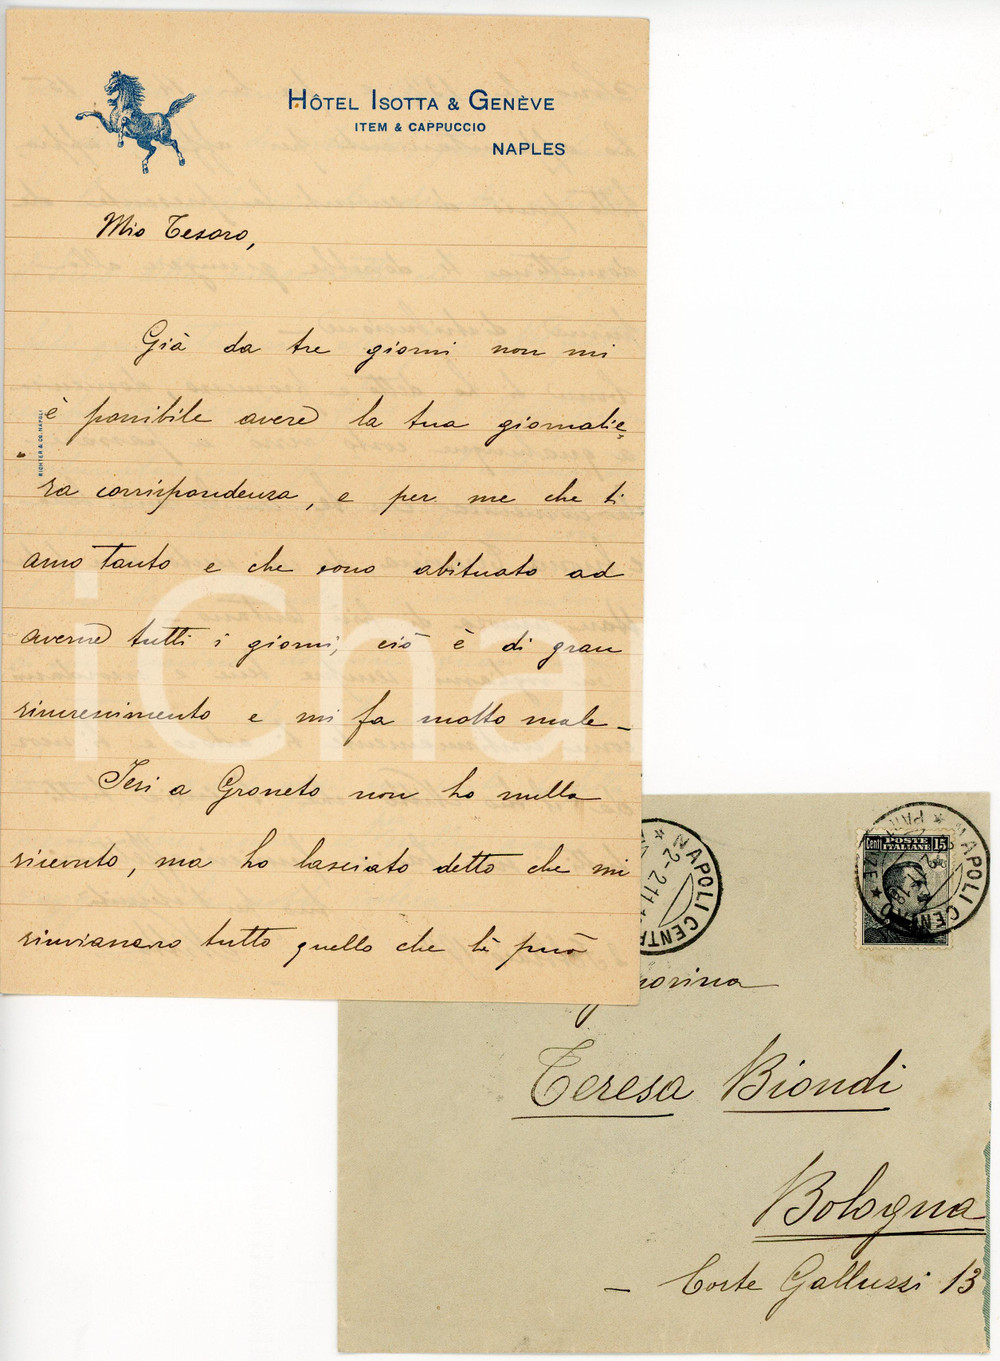 HÔTEL ISOTTA & GENÈVE
ITEM & CAPPUCCIO
NAPLES
Mio Tesoro,
Già da tre giorni non mi
è possibile avere la tua giornalie-
ra corrispondenza, e per me che ti
amo tanto e che sono abituato ad
averne tutti i giorni, ciò è di gran
rincrescimento e mi fa molto male_
Ieri a Grosseto non ho nulla
ricevuto, ma ho lasciato detto che mi
rinviassero tutto quello che lì può
RICHTER & Co. NAPOLI
iCha
NAPOLI CENTR
2-2.11
POSTE ITALIANE
cent 15
NAPOLI CENTRO
norina
Teresa Biondi
Bologna
_ Corte Galluzzi 13